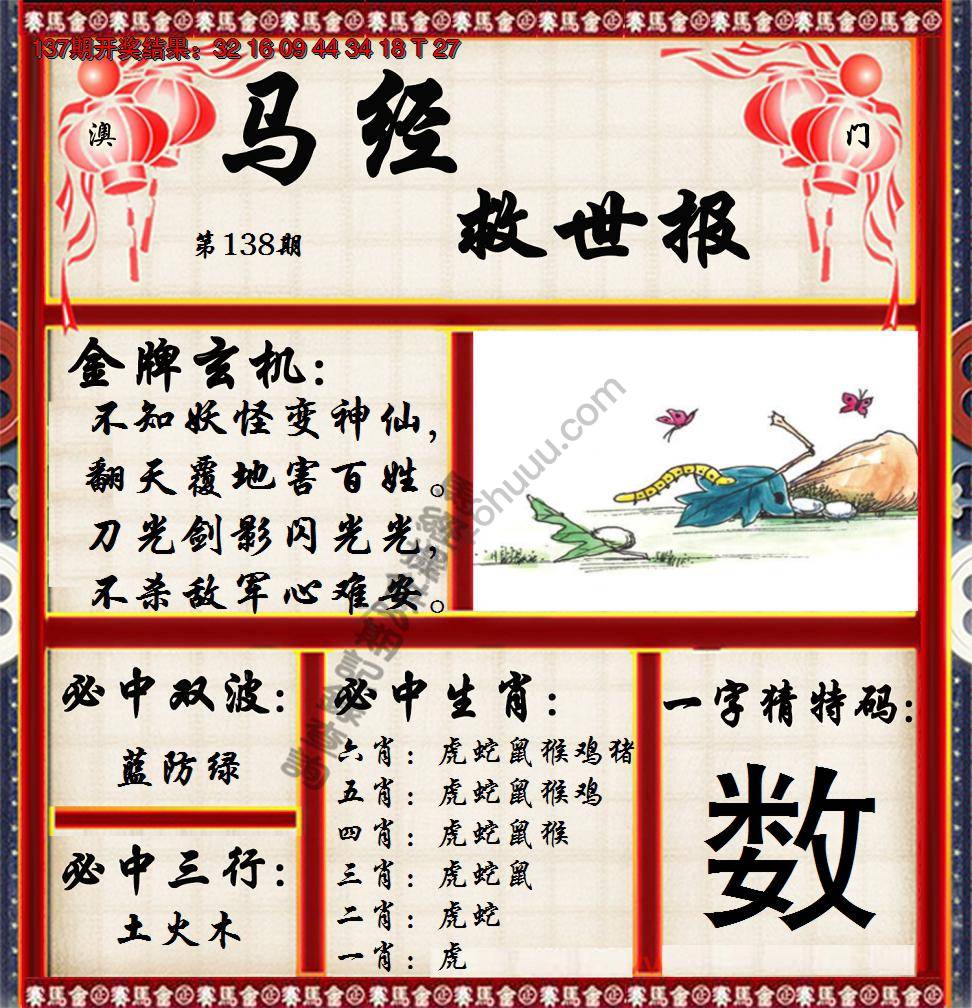 賽馬會
137期开奖结果：32 16 09 44 34 18 T 27
澳
门
马经
救世报
第138期
金牌玄机：
不知妖怪变神仙，
翻天覆地害百姓。
刀光剑影闪光光，
不杀敌军心难安。
必中双波：
蓝防绿
必中三行：
土火木
必中生肖：
六肖：虎蛇鼠猴鸡猪
五肖：虎蛇鼠猴鸡
四肖：虎蛇鼠猴
三肖：虎蛇鼠
二肖：虎蛇
一肖：虎
一字猜特码：
数